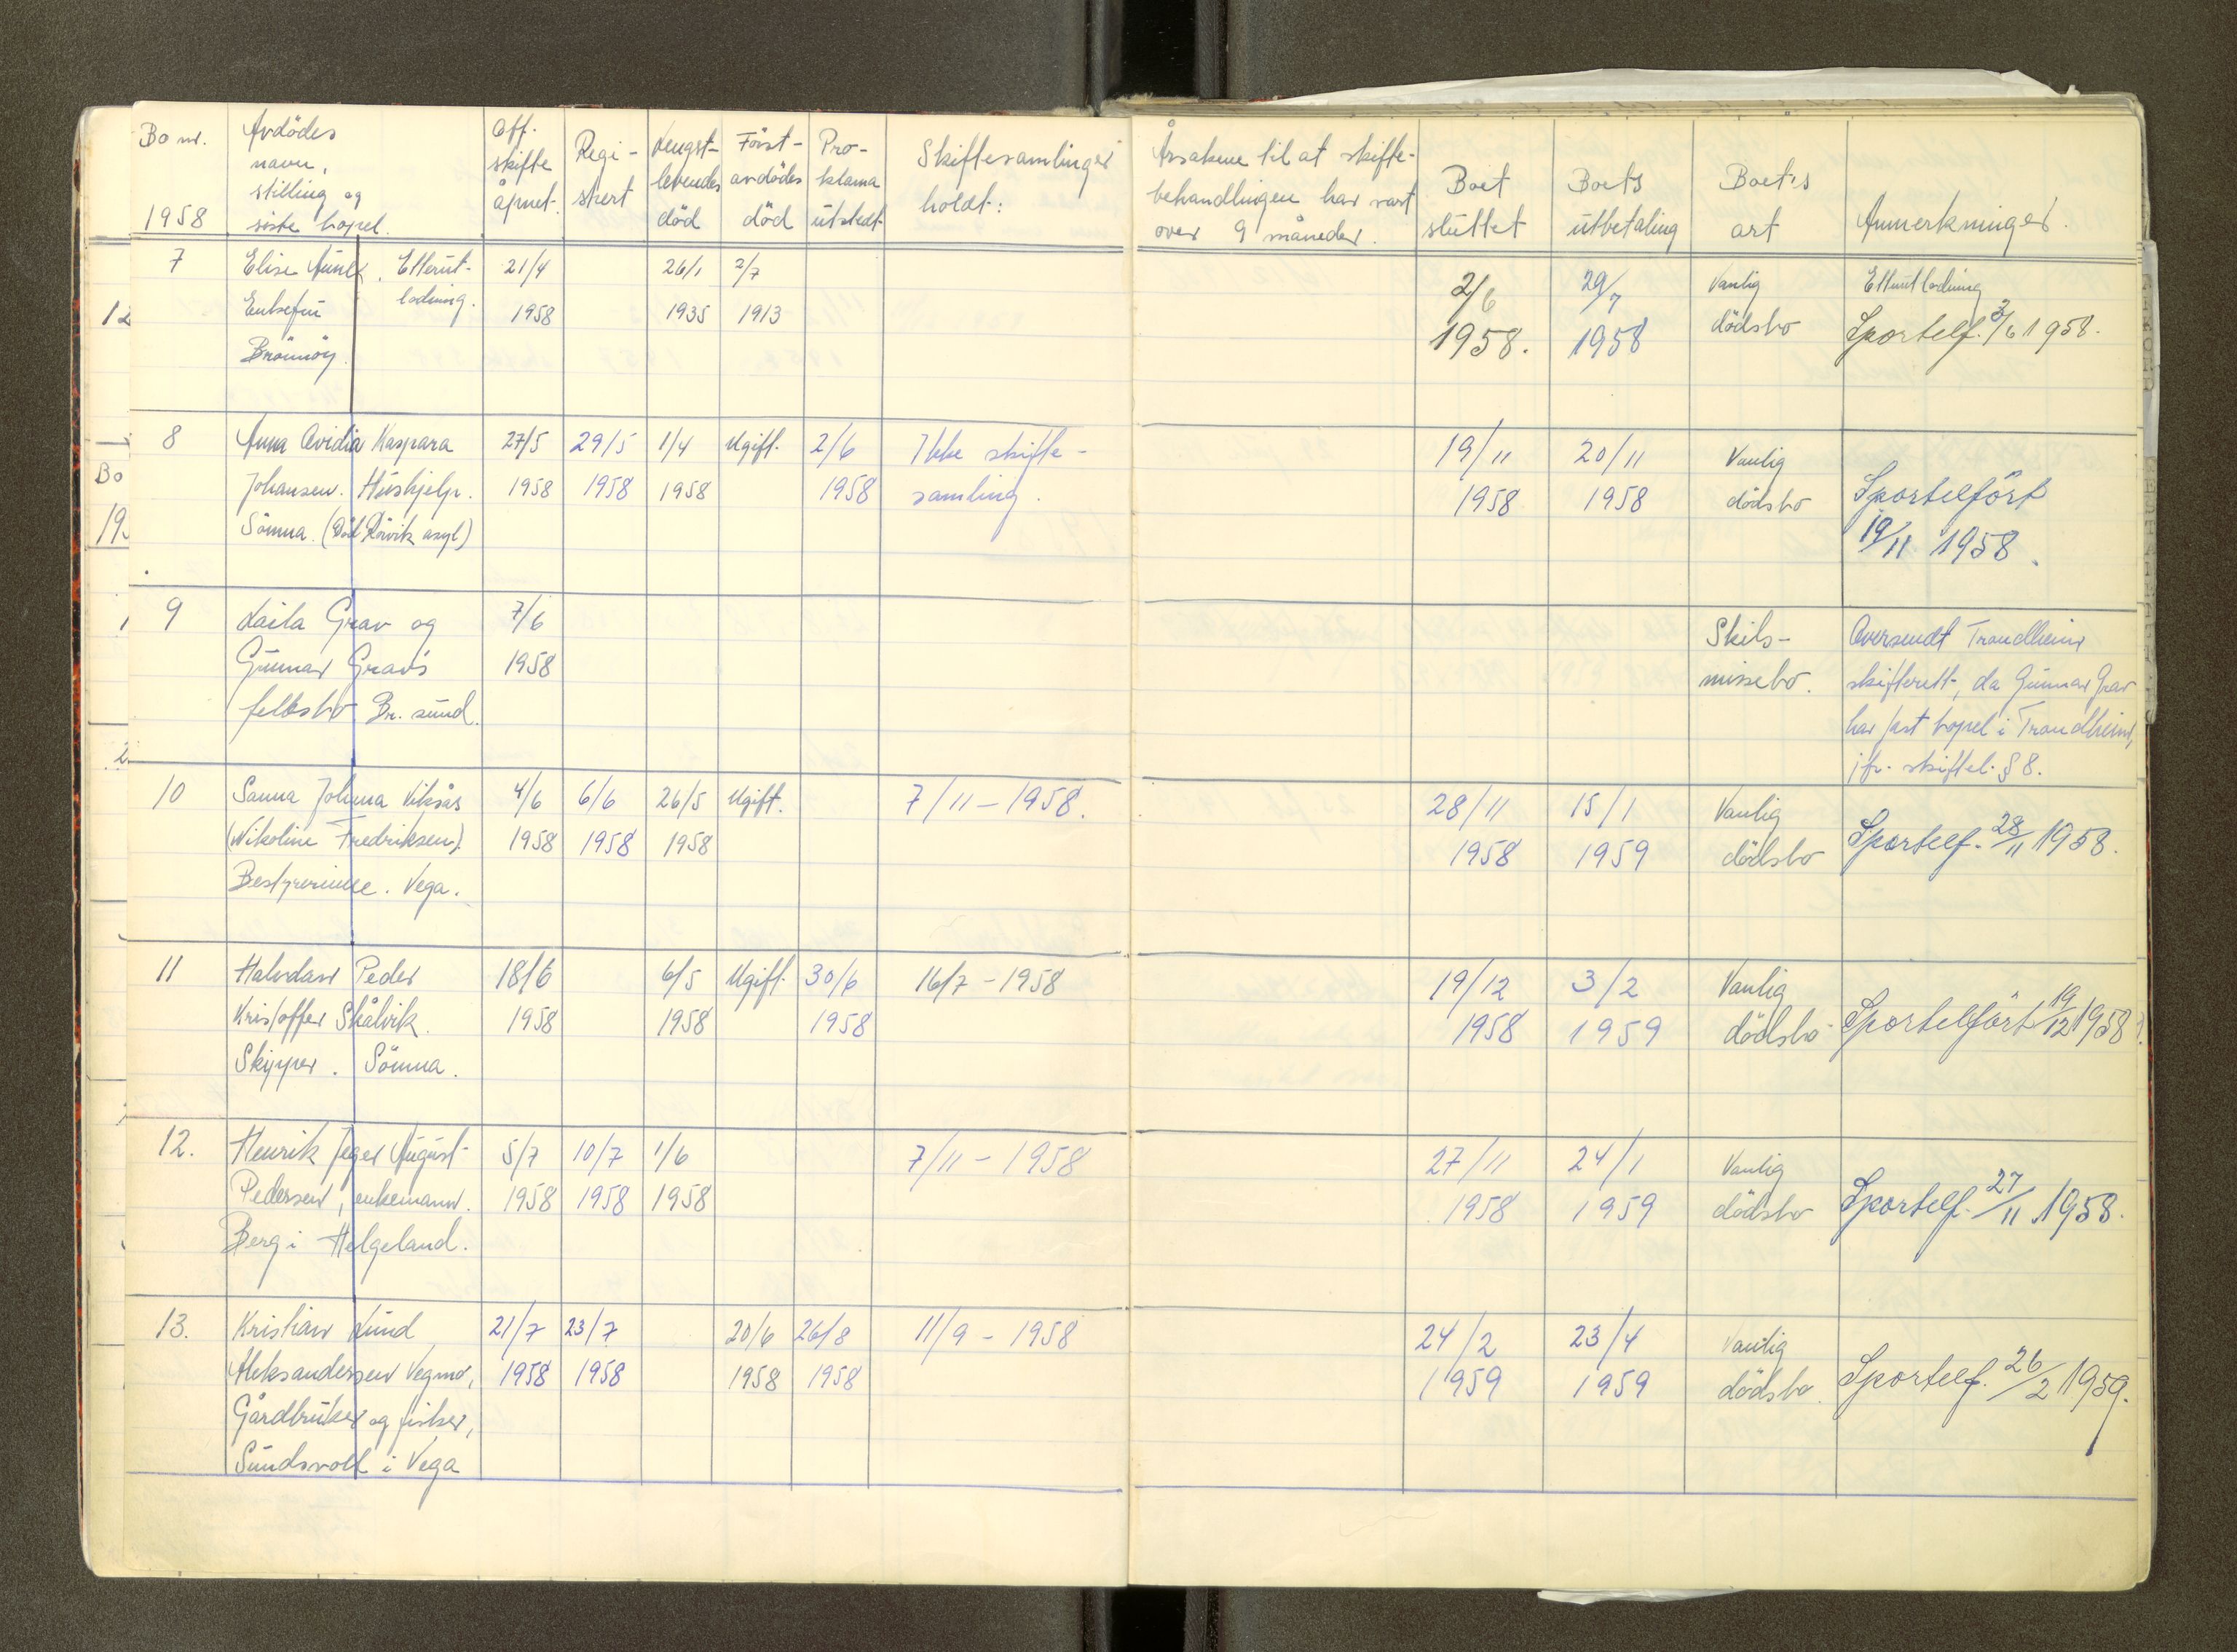 Bo nr.
1958
Avdödes
navn,
stilling og
siste bopel.
Off.
skifte
åpnet.
Regi-
strert
Lengst-
levendes
död
Först-
avdödes
död
Pro-
klama
utstedt
Skiftesamlinger
holdt:
Årsakene til at skifte-
behandlingen har vart
over 9 måneder.
Boet
sluttet
Boets
utbetaling
Boets
art
Anmerkninger.
7
Elise Aune. Etterut-
lodning.
Enkefru
Brönnöy.
21/4
1958
26/1
1935
2/7
1913
2/6
1958.
29/7
1958
Vanlig
dödsbo
Etterutlodning
Sportelf. 3/6 1958.
8
Anna Ovidia Kaspara
Johansen. Hushjelp.
Sömna. (Död Rörvik asyl)
27/5
1958
29/5
1958
1/4
1958
Ugift.
2/6
1958
Ikke skifte-
samling.
19/11
1958
20/11
1958
Vanlig
dödsbo
Sportelfört
19/11 1958.
9
Laila Grav og
Gunnar Grav's
fellesbo Br. sund.
7/6
1958
Skils-
missebo.
Oversendt Trondheim
skifterett, da Gunnar Grav
har fast bopel i Trondheim,
jfr. skiftel. § 8.
10
Sanna Johanna Viksås
(Nikoline Fredriksen).
Bestyrerinne. Vega.
4/6
1958
6/6
1958
26/5
1958
Ugift.
7/11 - 1958.
28/11
1958
15/1
1959
Vanlig
dödsbo
Sportelf. 28/11 1958.
11
Halvdan Peder
Kristoffer Skålvik.
Skipper. Sömna.
18/6
1958
6/5
1958
Ugift.
30/6
1958
16/7 - 1958
19/12
1958
3/2
1959
Vanlig
dödsbo
Sportelfört 19/12 1958
12.
Henrik Jeger August
Pedersen, enkemann.
Berg i Helgeland.
5/7
1958
10/7
1958
1/6
1958
7/11 - 1958
27/11
1958
24/1
1959
Vanlig
dödsbo
Sportelf. 27/11 1958.
13.
Kristian Lund
Aleksandersen Vegmo,
Gårdbruker og fisker,
Sundsvoll i Vega
21/7
1958
23/7
1958
20/6
1958
26/8
1958
11/9 - 1958
24/2
1959
23/4
1959
Vanlig
dödsbo.
Sportelf. 26/2 1959.
12
Bo
19
1
2